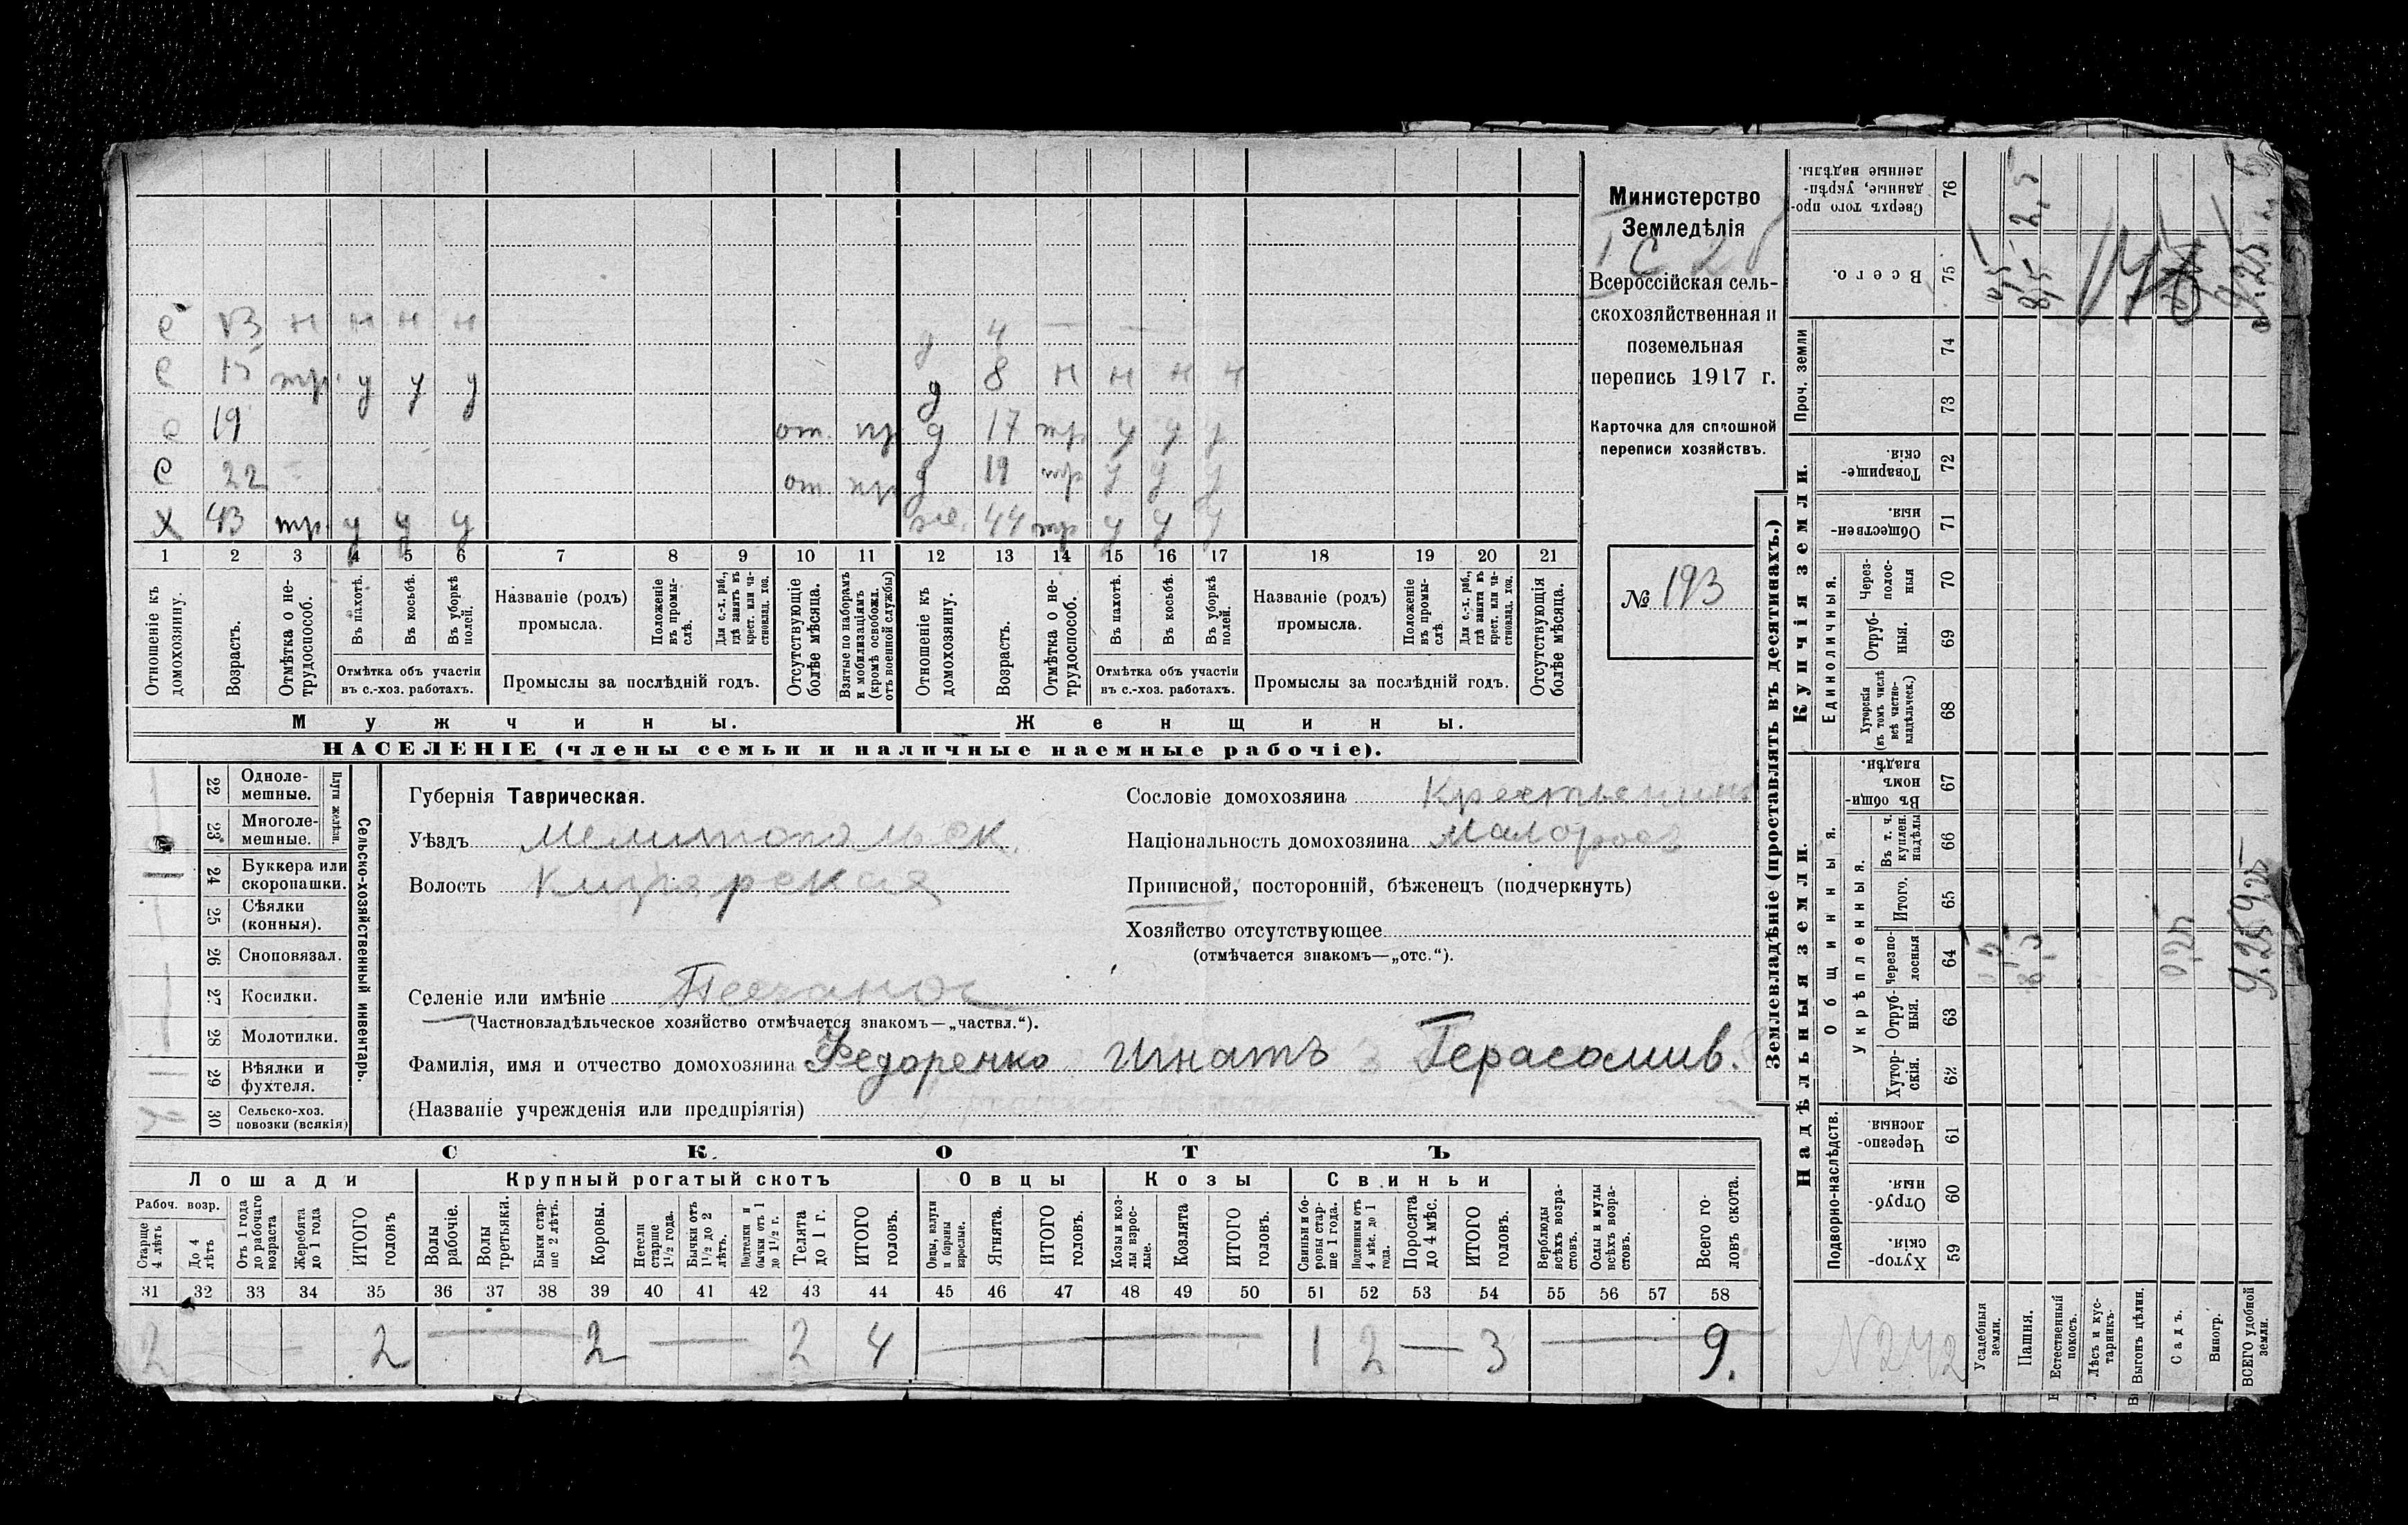 Министерство
Земледѣлія
Всероссійская сель-
скохозяйственная и
поземельная
перепись 1917 г.
Карточка для сплошной
переписи хозяйствъ.
№ 193
с 13 н н н н
с 15 тр. у у у
с 19 от. пр
с 22 от пр
х 43 тр. у у у
д 4 — —
д 8 н н н н
д 17 тр у у у
д 19 тр у у у
же. 44 тр у у у
1 2 3 4 5 6 7 8 9 10 11 12 13 14 15 16 17 18 19 20 21
Отношеніе къ домохозяину.
Возрастъ.
Отмѣтка о не-трудоспособ.
Въ пахотѣ.
Въ косьбѣ.
Въ уборкѣ полей.
Отмѣтка объ участіи въ с.-хоз. работахъ.
Названіе (родъ) промысла.
Положеніе въ промы-слѣ.
Для с.-х. раб., гдѣ занятъ въ крест. или ча-стновлад. хоз.
Промыслы за послѣдній годъ.
Отсутствующіе болѣе мѣсяца.
Взятые по наборамъ и мобилизаціямъ (кромѣ освобожд. отъ военной службы)
Отношеніе къ домохозяину.
Возрастъ.
Отмѣтка о не-трудоспособ.
Въ пахотѣ.
Въ косьбѣ.
Въ уборкѣ полей.
Отмѣтка объ участіи въ с.-хоз. работахъ.
Названіе (родъ) промысла.
Положеніе въ промы-слѣ.
Для с.-х. раб., гдѣ занята въ крест. или ча-стновлад. хоз.
Промыслы за послѣдній годъ.
Отсутствующія болѣе мѣсяца.
Мужчины. Женщины.
НАСЕЛЕНІЕ (члены семьи и наличные наемные рабочіе).
22 Одноле-мешные.
23 Многоле-мешные.
Плуги желѣзн.
24 Буккера или скоропашки.
25 Сѣялки (конныя).
26 Сноповязал.
27 Косилки.
28 Молотилки.
29 Вѣялки и фухтеля.
30 Сельско-хоз. повозки (всякія)
Сельско-хозяйственный инвентарь.
Губернія Таврическая.
Уѣздъ Мелитопольск.
Волость
Селеніе или имѣніе
(Частновладѣльческое хозяйство отмѣчается знакомъ—„частвл.“).
Фамилія, имя и отчество домохозяина Федоренко Игнатъ Герасомив.
(Названіе учрежденія или предпріятія)
Сословіе домохозяина Крестьянинъ
Національность домохозяина Малоросс
Приписной, посторонній, бѣженецъ (подчеркнуть)
Хозяйство отсутствующее
(отмѣчается знакомъ—„отс.“).
СКОТЪ
Лошади Крупный рогатый скотъ Овцы Козы Свиньи
Рабоч. возр.
Старще 4 лѣтъ
До 4 лѣтъ
Отъ 1 года до рабочаго возраста
Жеребята до 1 года
ИТОГО головъ
Волы рабочіе.
Волы третьяки.
Быки стар-ше 2 лѣтъ.
Коровы.
Нетели старше 1 1/2 года.
Бычки отъ 1 1/2 до 2 лѣтъ.
Подтелки и бычки отъ 1 до 1 1/2 г.
Телята до 1 г.
ИТОГО головъ.
Овцы, валухи и бараны взрослые.
Ягнята.
ИТОГО головъ.
Козы и коз-лы взрос-лые.
Козлята
ИТОГО головъ.
Свиньи и бо-ровы стар-ше 1 года.
Подсвинки отъ 4 мѣс. до 1 года.
Поросята до 4 мѣс.
ИТОГО головъ.
Верблюды всѣхъ возра-стовъ.
Ослы и мулы всѣхъ возра-стовъ.
Всего го-ловъ скота.
31 32 33 34 35 36 37 38 39 40 41 42 43 44 45 46 47 48 49 50 51 52 53 54 55 56 57 58
2 — — 2 — 2 — 2 4 — 1 2 — 3 — 9.
Землевладѣніе (проставлять въ десятинахъ.)
Купчія земли.
Надѣльныя земли.
Сверхъ того про-данные, укрѣп-ленные надѣлы. 76
Всего. 75
Проч. земли
74
73
Товарище-скія. 72
Обществен-ныя. 71
Единоличныя.
Через-полос-ныя 70
Отруб-ныя. 69
Хуторскія (въ томъ числѣ всѣ частно-владѣльческ.) 68
Общинныя.
Въ общи-номъ владѣн. 67
Укрѣпленныя.
Въ т. ч. куплен. надѣлы 66
Итого. 65
Черезпо-лосныя 64
Отруб-ныя. 63
Хутор-скія. 62
Подворно-наслѣдств.
Черезпо-лосныя. 61
Отруб-ныя 60
Хутор-скія. 59
Усадебныя земли.
Пашня.
Естественный покосъ.
Лѣсъ и кус-тарникъ.
Выгонъ цѣлин.
Садъ.
Виногр.
ВСЕГО удобной земли.
0,5
8,5
2,5
0,5
8,5
0,25
9.25
9.25
N242